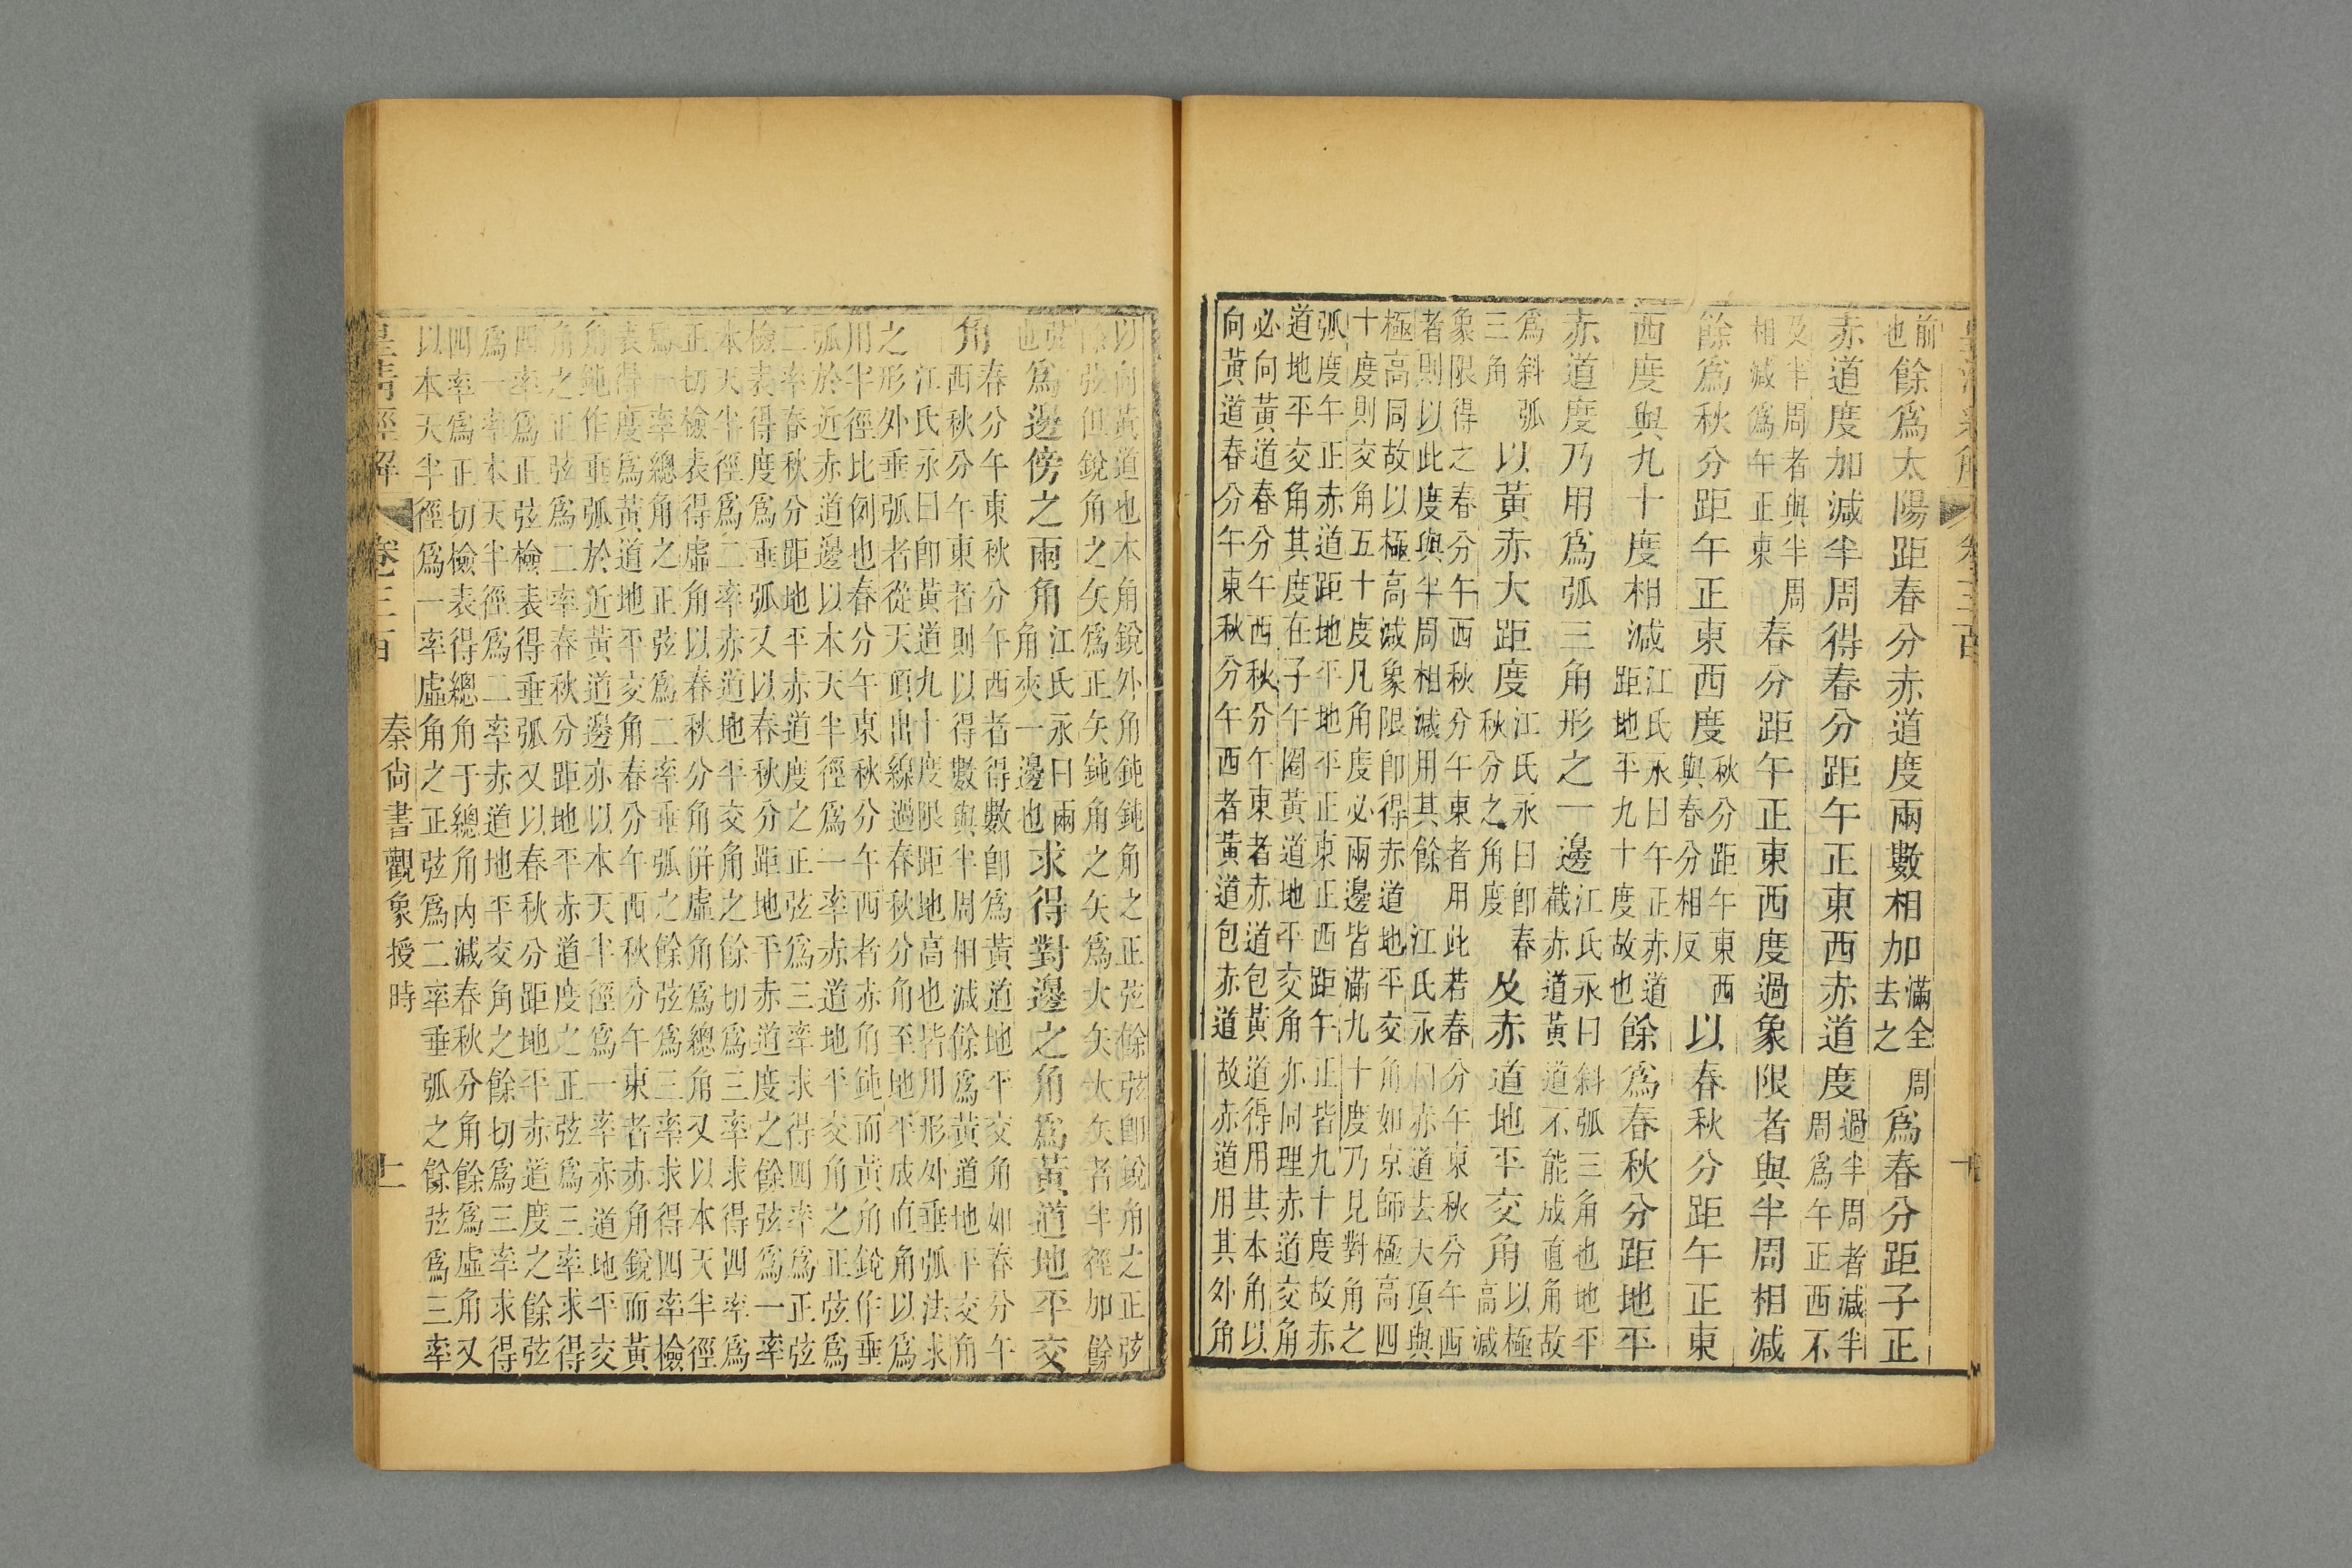 前也餘為太陽距春分赤道度兩數相加滿全周去之為春分距子正
赤道度加減半周得春分距午正東西赤道度過半周者減半周為午正西不
及半周者與半周相減為午正東春分距午正東西度過象限者與半周相減
餘為秋分距午正東西度秋分距午東西與春分相反以春秋分距午正東
西度與九十度相減江氏永曰午正赤道距地平九十度故也餘為春秋分距地平
赤道度乃用為弧三角形之一邊江氏永曰斜弧三角也地平截赤道黃道不能成直角故
為斜弧三角以黃赤大距度江氏永曰即春秋分之角度及赤道地平交角以極高減
象限得之春分午西秋分午東者用此若春分午東秋分午西
者則以此度與半周相減用其餘 江氏永曰赤道去天頂與
極高同故以極高減象限即得赤道地平交角如京師極高四
十度則交角五十度凡角度必兩邊皆滿九十度乃見對角之
弧度午正赤道距地平地平正東正西距午正皆九十度故赤
道地平交角其度在子午圈黃道地平交角亦同理赤道交角
必向黃道春分午西秋分午東者赤道包黃道得用其本角以
向黃道春分午東秋分午西者黃道包赤道故赤道用其外角
以向黃道也本角銳外角鈍鈍角之正弦餘弦即銳角之正弦
餘弦但銳角之矢為正矢鈍角之矢為大矢大矢者半徑加餘
弦也為邊傍之兩角江氏永曰兩角夾一邊也求得對邊之角為黃道地平交
角春分午東秋分午西者得數即為黃道地平交角如春分午
西秋分午東者則以得數與半周相減餘為黃道地平交角
江氏永曰即黃道九十度限距地高也皆用形外垂弧法求
之形外垂弧者從天頂出線過春秋分角至地平成直角以為
用半徑比例也春分午東秋分午西者赤角鈍而黃角銳作垂
弧於近赤道邊以本天半徑為一率赤道地平交角之正弦為
二率春秋分距地平赤道度之正弦為三率求得四率為正弦
檢表得度為垂弧又以春秋分距地平赤道度之餘弦為一率
本天半徑為二率赤道地平交角之餘切為三率求得四率為
正切檢表得虛角以春秋分角併虛角為總角又以本天半徑
為一率總角之正弦為二率垂弧之餘弦為三率求得四率檢
表得度為黃道地平交角春分午西秋分午東者赤角銳而黃
角鈍作垂弧於近黃道邊亦以本天半徑為一率赤道地平交
角之正弦為二率春秋分距地平赤道度之正弦為三率求得
四率為正弦檢表得垂弧又以春秋分距地平赤道度之餘弦
為一率本天半徑為二率赤道地平交角之餘切為三率求得
四率為正切檢表得總角于總角內減春秋分角餘為虛角又
以本天半徑為一率虛角之正弦為二率垂弧之餘弦為三率
皇清經解 卷三百 秦尚書觀象授時